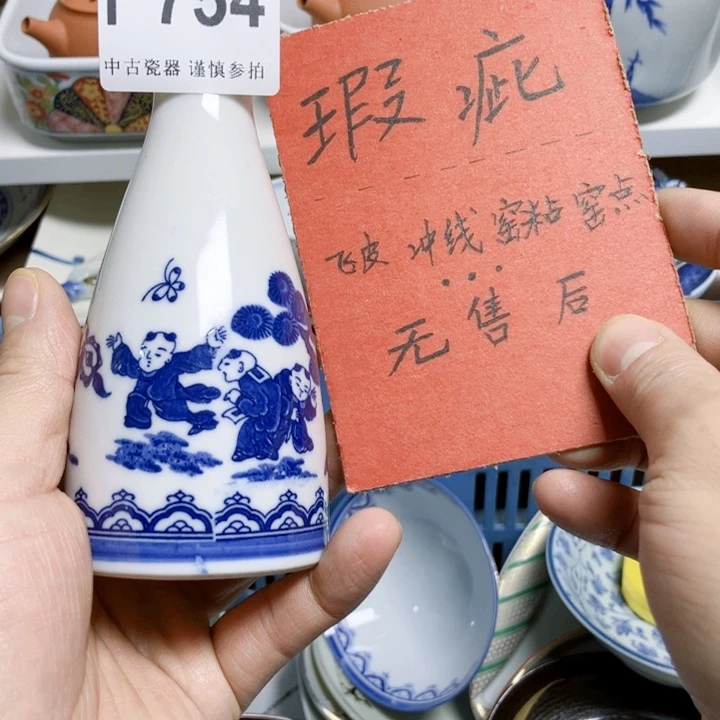 P 754
中古瓷器 谨慎参拍
瑕疵
飞皮 冲线 窑粘 窑点
...
无售后